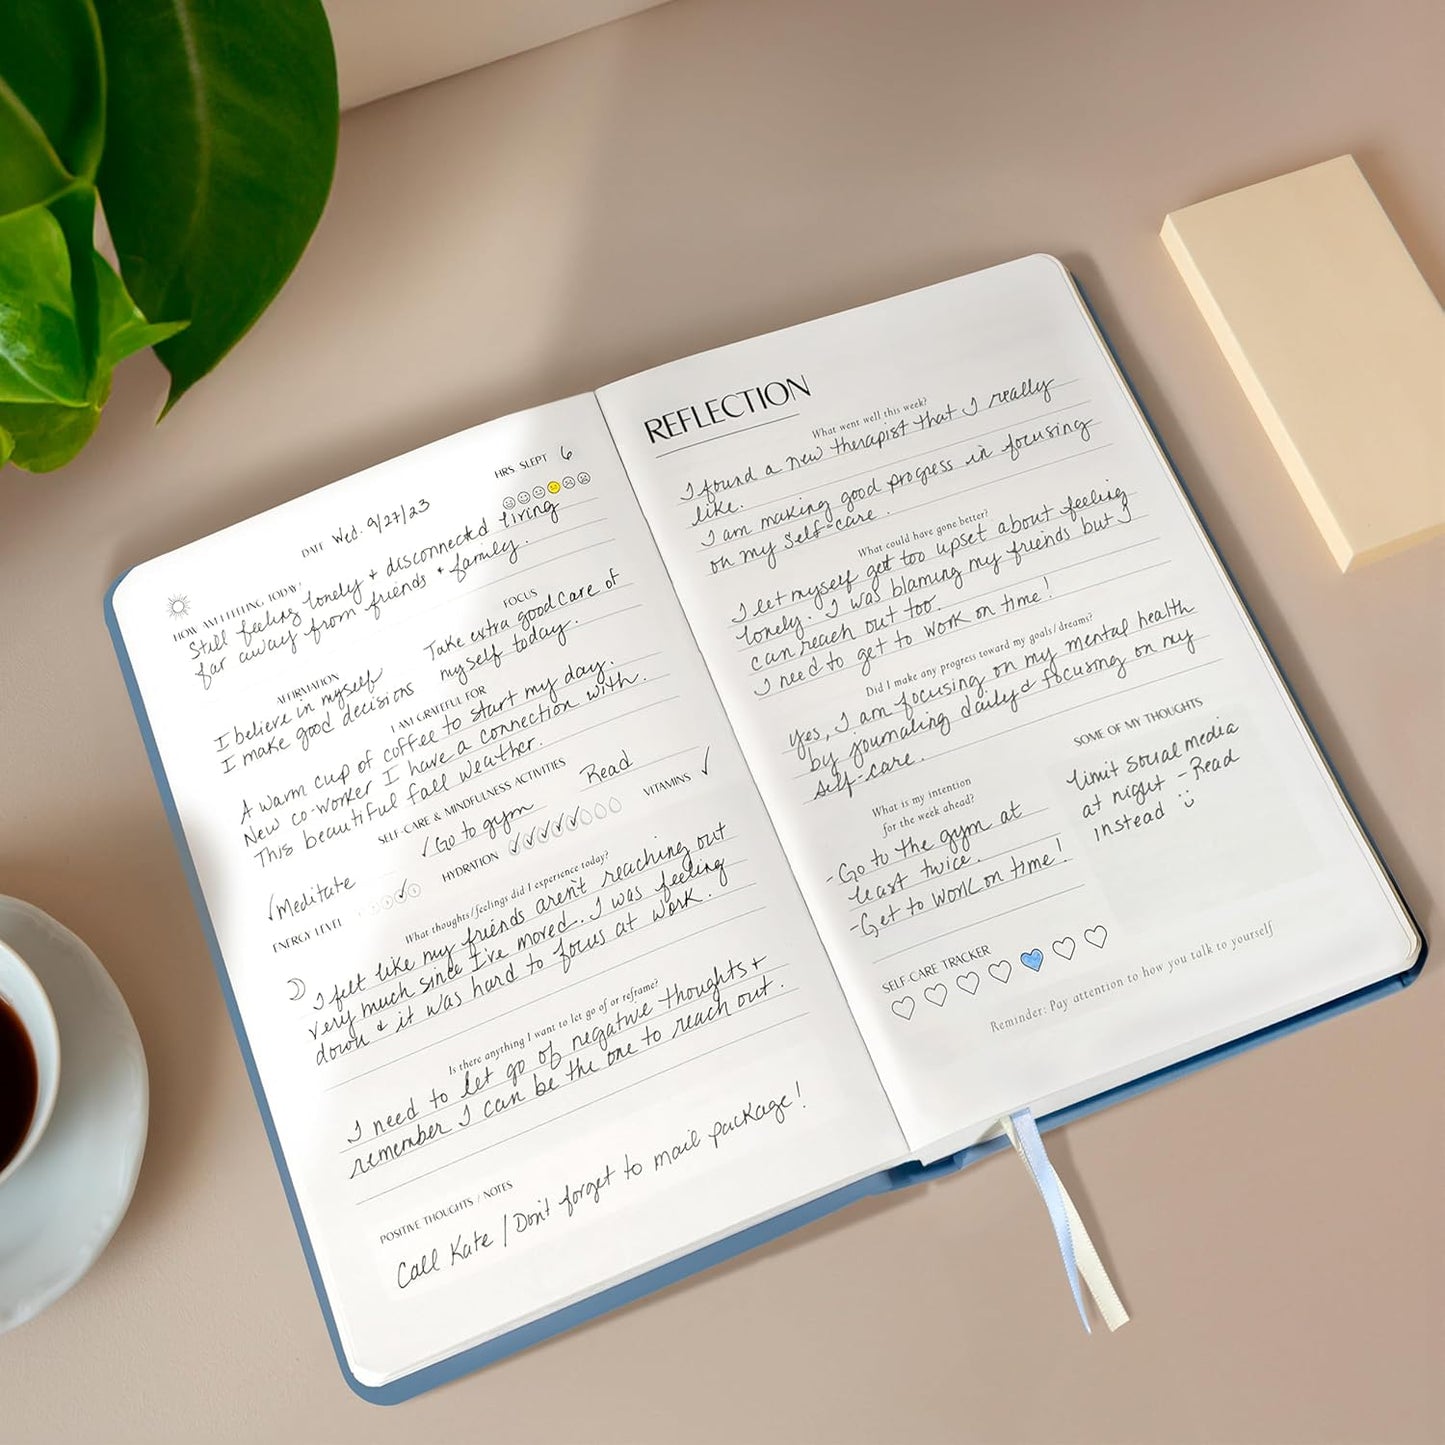 HRS. SLEPT 6
DATE Wed. 9/27/23
HOW AM I FEELING TODAY?
Still feeling lonely + disconnected living
far away from friends + family.
AFFIRMATION
I believe in myself
I make good decisions
FOCUS
Take extra good care of
myself today.
I AM GRATEFUL FOR
A warm cup of coffee to start my day.
New co-worker I have a connection with.
This beautiful fall weather.
SELF-CARE & MINDFULNESS ACTIVITIES
✓Meditate ✓Go to gym Read
ENERGY LEVEL HYDRATION VITAMINS ✓
What thoughts/feelings did I experience today?
I felt like my friends aren't reaching out
very much since I've moved. I was feeling
down & it was hard to focus at work.
Is there anything I want to let go of or reframe?
I need to let go of negative thoughts +
remember I can be the one to reach out.
POSITIVE THOUGHTS / NOTES
Call Kate / Don't forget to mail package!
REFLECTION
What went well this week?
I found a new therapist that I really
like.
I am making good progress in focusing
on my self-care.
What could have gone better?
I let myself get too upset about feeling
lonely. I was blaming my friends but I
can reach out too.
I need to get to work on time!
Did I make any progress toward my goals/dreams?
Yes, I am focusing on my mental health
by journaling daily & focusing on my
self-care.
What is my intention
for the week ahead?
-Go to the gym at
least twice.
-Get to work on time!
SOME OF MY THOUGHTS
limit social media
at night - Read
instead :)
SELF-CARE TRACKER
Reminder: Pay attention to how you talk to yourself